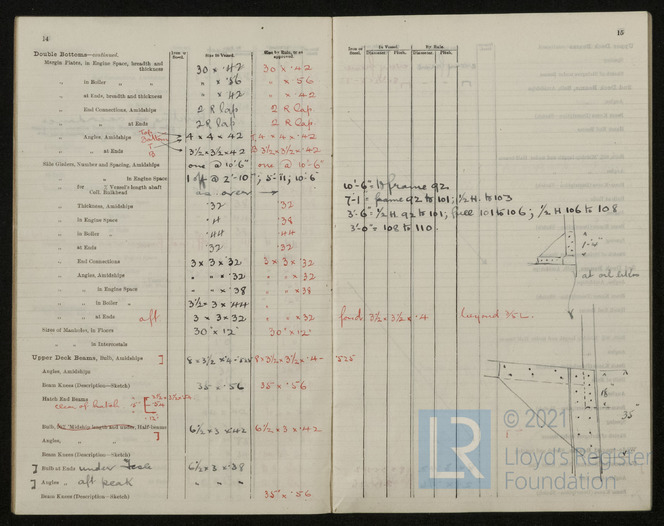 14
Double Bottoms—continued.
Iron or Steel.
Size in Vessel.
Size by Rule, or as approved.
Margin Plates, in Engine Space, breadth and thickness
30 × .42
30 × .42
„ in Boiler „ „
„ × .56
„ × .56
„ at Ends, breadth and thickness
„ × .42
„ × .42
„ End Connections, Amidships
2 R Lap
2 R Lap
„ „ at Ends
2 R Lap
2 R Lap
„ Angles, Amidships
Top
Bottom
4 × 4 × .42
4 × 4 × .42
„ „ at Ends
T
B
3½ × 3½ × .42
3½ × 3½ × .42
Side Girders, Number and Spacing, Amidships
one @ 10'-6"
one @ 10'-6"
„ „ in Engine Space
1 off @ 2'-10"; 5'-11; 10'-6"
for ½ Vessel's length abaft Coll. Bulkhead
as over
„ Thickness, Amidships
.32
.32
„ in Engine Space
.38
„ in Boiler „
.44
.44
„ at Ends
.32
.32
„ End Connections
3 × 3 × .32
3 × 3 × .32
„ Angles, Amidships
„ „ × .32
„ × .32
„ „ in Engine Space
„ „ × .38
„ × .38
„ „ in Boiler „
3½ × 3 × .44
„ „ at Ends
aft.
3 × 3 × .32
„ × .32
Sizes of Manholes, in Floors
30" × 12"
30" × 12"
„ „ in Intercostals
Upper Deck Beams, Bulb, Amidships
8 × 3½ × .4 - .525
8 × 3½ × 3½ × .4 -
.525
Angles, Amidships
Beam Knees (Description—Sketch)
35 × .56
35 × .56
Hatch End Beams
Bulb,
Half-beams
6½ × 3 × .42
6½ × 3 × .42
Angles, „ „
Beam Knees (Description—Sketch)
Bulb at Ends
under
6½ × 3 × .38
Angles „
aft peak
„ „ „
Beam Knees (Description—Sketch)
35" × .56
15
Iron or Steel.
In Vessel.
By Rule.
Diameter.
Pitch.
Diameter.
Pitch.
10'-6" to frame 92
7'-1" = frame 92 to 101; ½ H. to 103
3'-6" = ½ H. 92 to 101; full 101 to 106; ½ H 106 to 108
3'-0" = 108 to 110.
1'-4"
3½ × 3½ × .4
beyond 3/5 L.
18"
35"
LR
© 2021
Lloyd's Register
Foundation